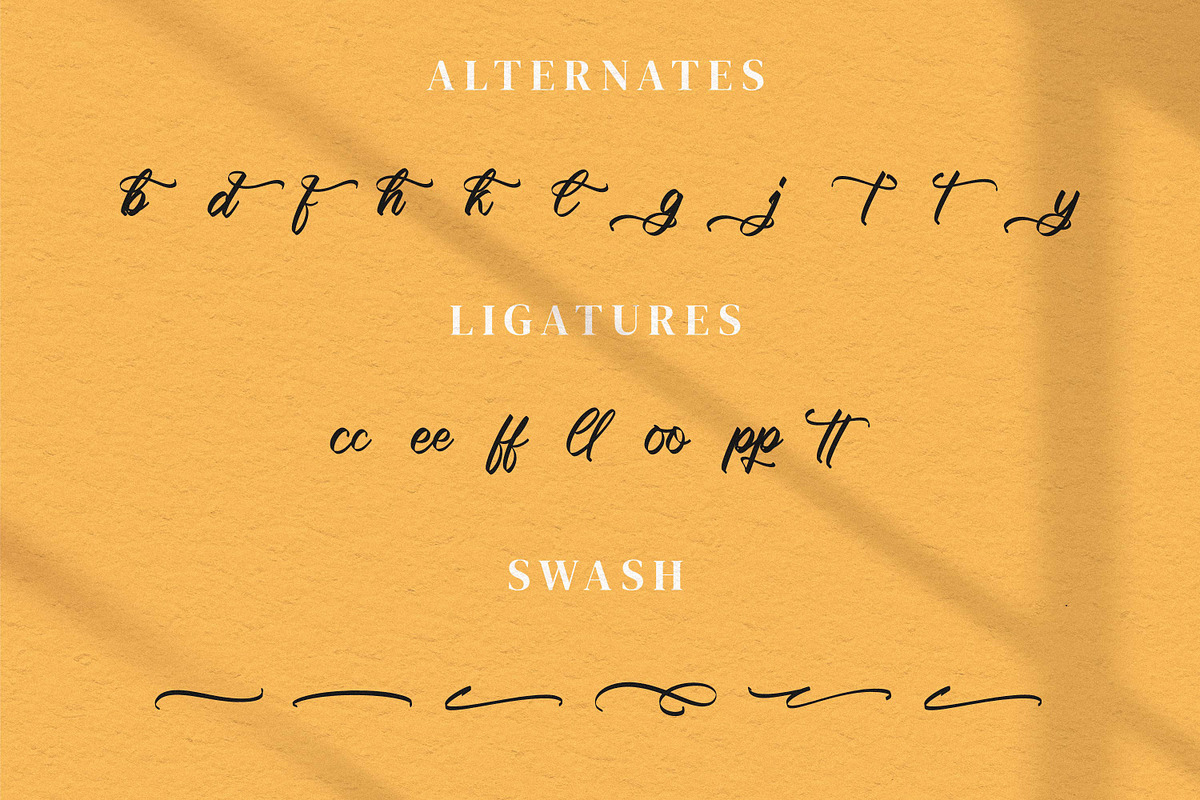 ALTERNATES
b d f h k l g j t t y
LIGATURES
cc ee ff ll oo pp tt
SWASH